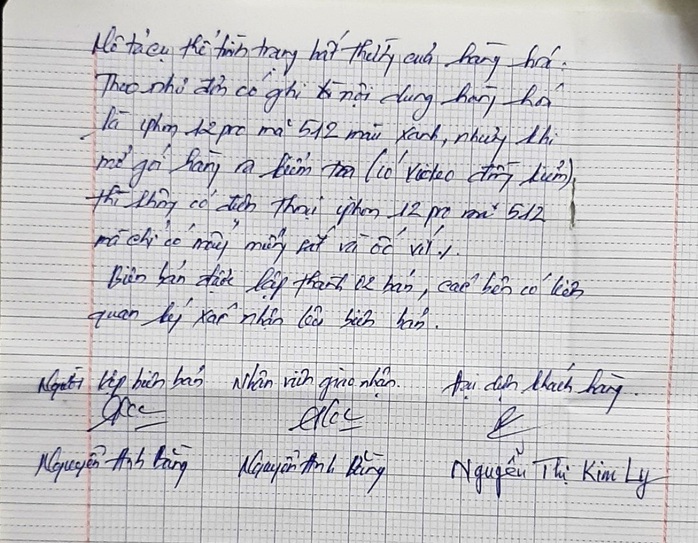 Mô tả cụ thể tình trạng bất thường của hàng hoá.
Theo như đơn có ghi nội dung hàng hoá
là iphon 12 pro max 512 màu xanh, nhưng khi
mở gói hàng ra kiểm tra (có video đồng kiểm),
thì không có điện thoại iphon 12 pro max 512
mà chỉ có mấy miếng sắt và ốc vít.
Biên bản được lập thành 02 bản, các bên có liên
quan ký xác nhận lên biên bản.
Người lập biên bản Nhân viên giao nhận. Đại diện khách hàng.
Nguyễn Anh Bằng Nguyễn Anh Bằng Nguyễn Thị Kim Ly